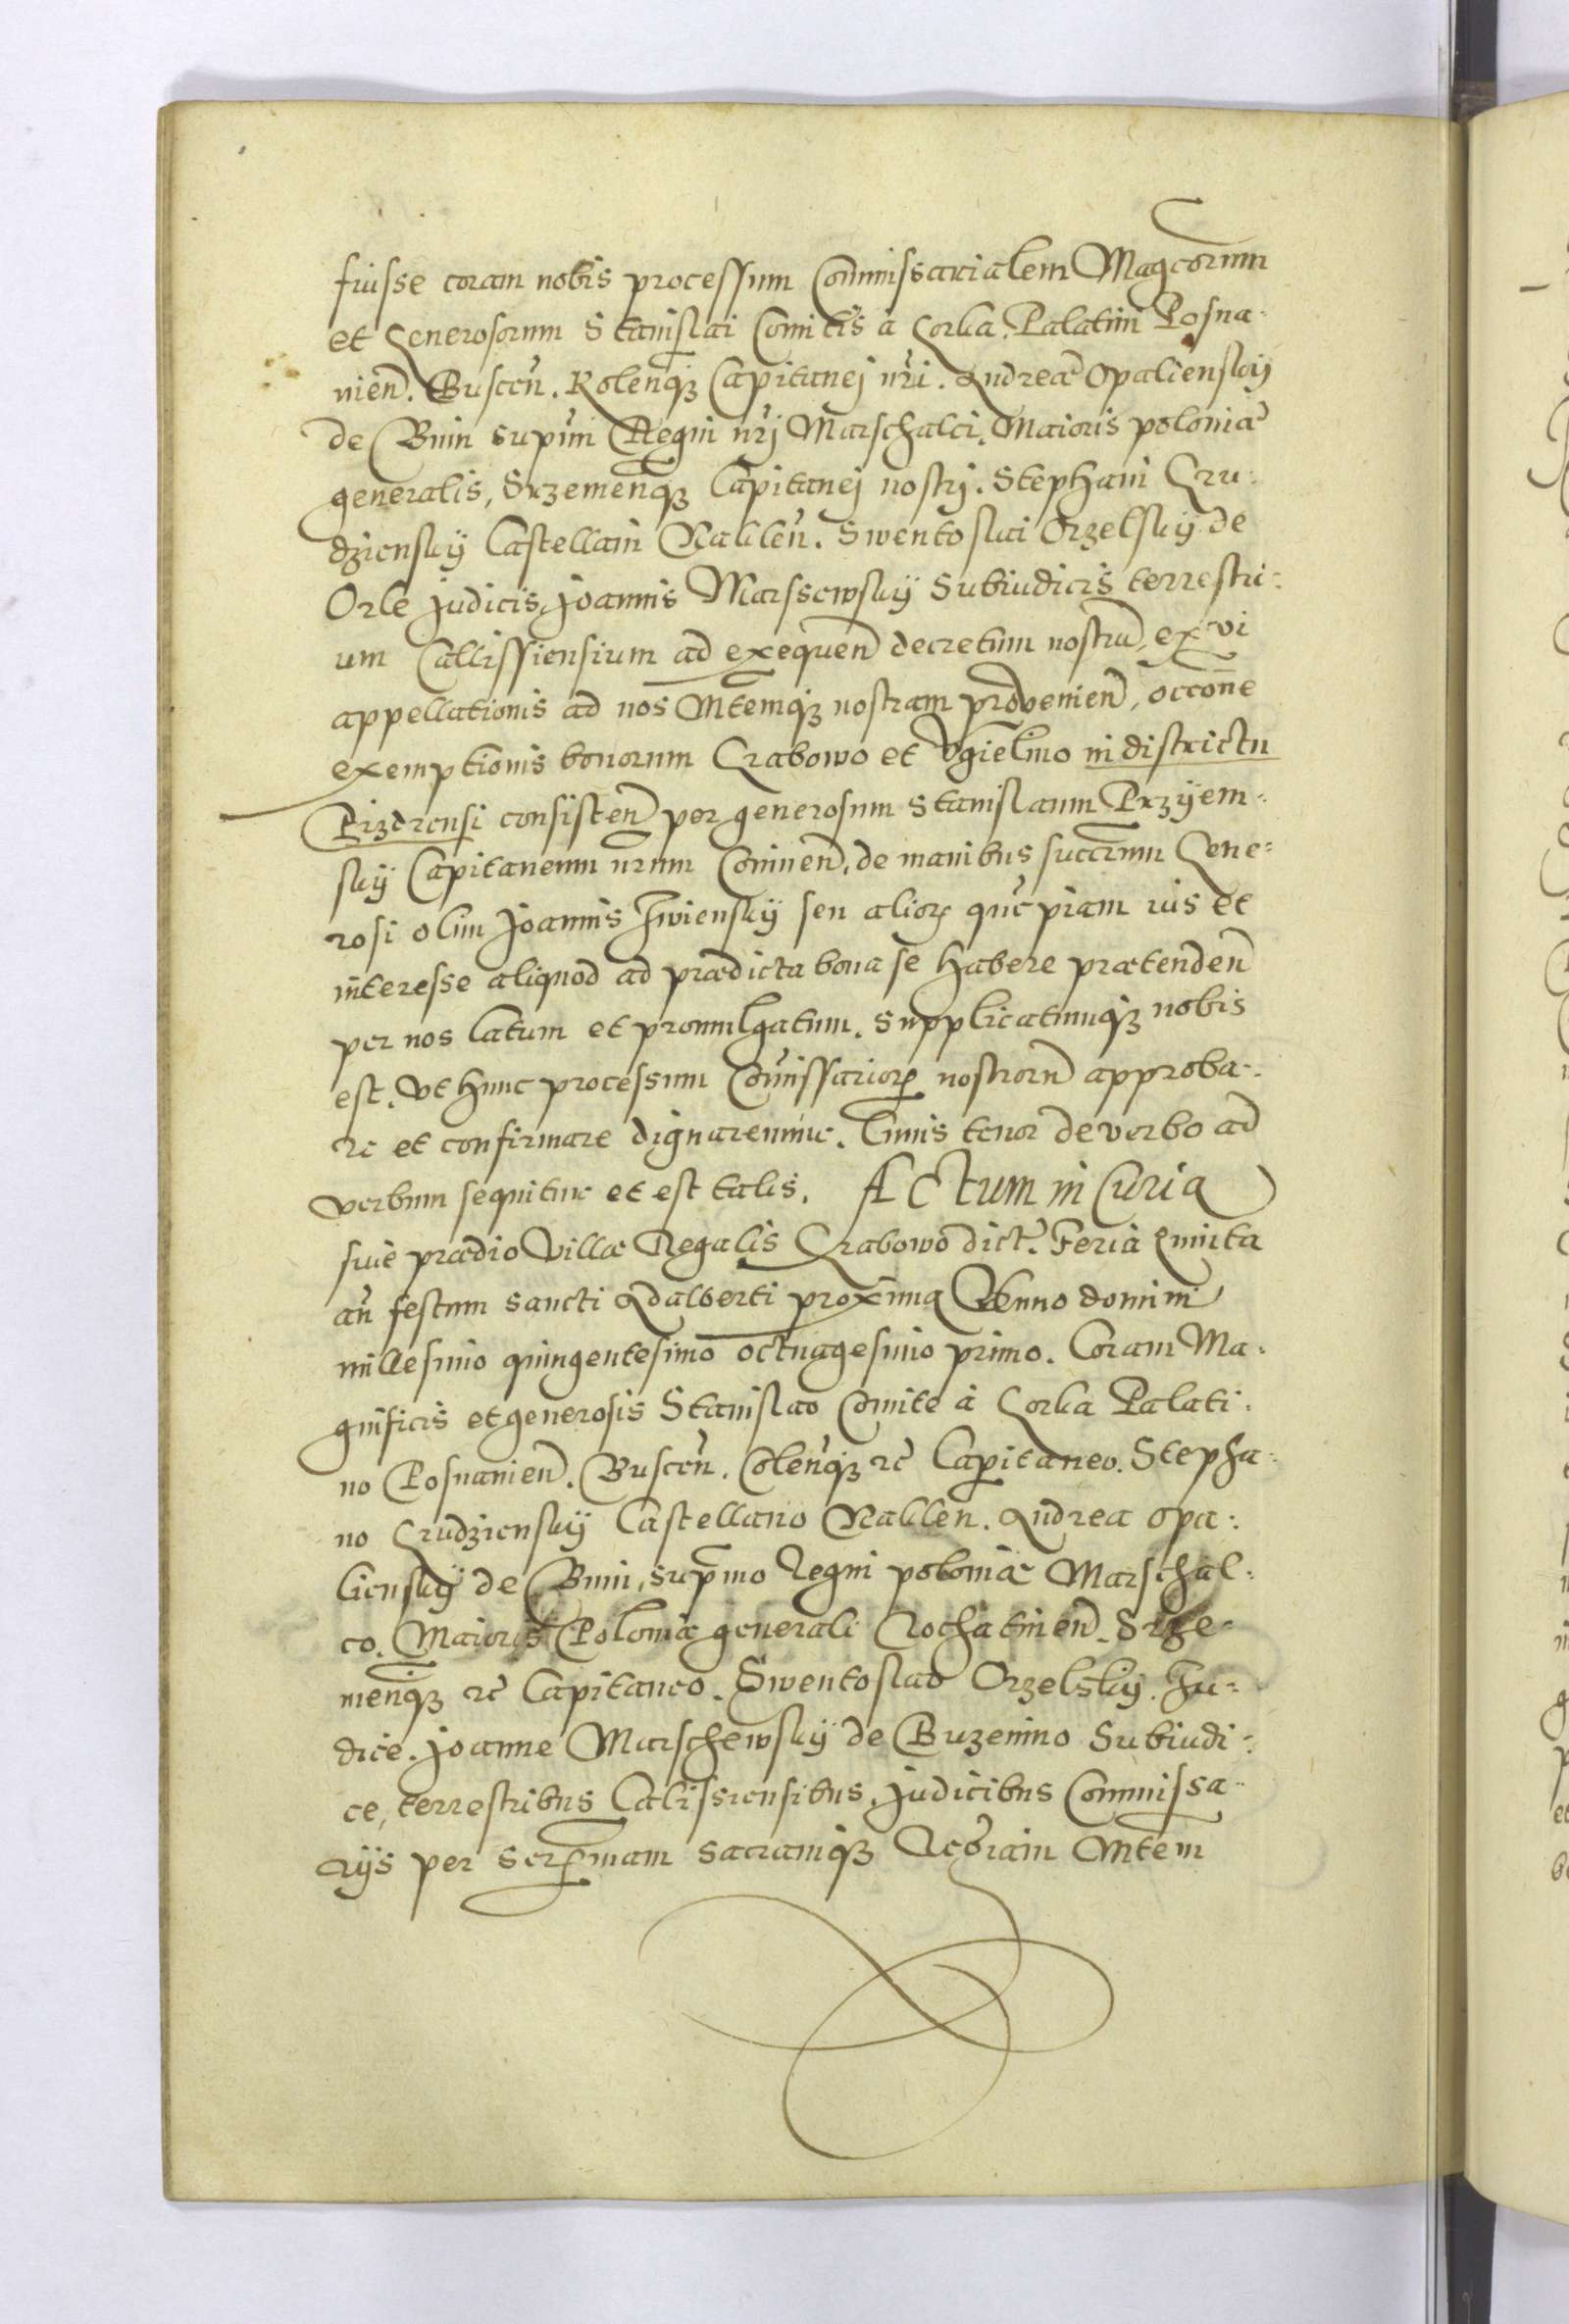 fuisse coram nobis processum Commissarialem Magcorum
et Generosorum Stanislai Comitis a Gorka. Palatini Posna-
nien. Buscen. Kolenq3 Capitanej nri. Andreae Opaliensky
de Bnin supmi Regni nrj Marschalci. Maioris poloniae
generalis, Srzemenq3 Capitanej nostrj. Stephani Gru-
dziensky Castellani Naklen. Swentoslai Orzelsky de
Orle judicis, joannis Marssewsky Subiudicis terrestri-
um Callissiensium ad exequen decretum nostru, ex vi
appellationis ad nos Mtemq3 nostram provenien, occone
exemptionis bonorum Grabowo et Vgielmo in districtu
Pizdrensi consisten per generosum Stanislaum Przyem-
sky Capitaneum nrum Coninen. de manibus succrum Gene-
rosi olim Joannis Zwiensky seu alior quepiam ius et
interesse aliquod ad praedicta bona se habere praetenden
per nos latum et promulgatum. Supplicatumq3 nobis
est. vt hunc processum Comissarior nostroru approba-
re et confirmare dignaremur. Cuius tenor de verbo ad
verbum sequitur et est talis. Actum in Curia
siue praedio Villae Regalis Grabowo dict. Feria quinta
an festum sancti Adalberti proxima Anno domini
millesimo quingentesimo octuagesimo primo. Coram Ma-
gnificis et generosis Stanislao Comite à Gorka Palati-
no Posnanien. Buscen. Colenq3 rc Capitaneo. Stepha-
no Grudziensky Castellano Naklen. Andrea Opa-
liensky de Bnin, supmo Regni poloniae Marschal-
co. Maioris Poloniae generali Rochatinen. Srze-
menq3 rc Capitaneo. Swentoslao Orzelsky. Ju-
dice. joanne Marschewsky de Buzenino Subiudi-
ce, terrestribus Calissiensibus. judicibus Commissa-
rijs per Serpmam sacramq3 Mtem